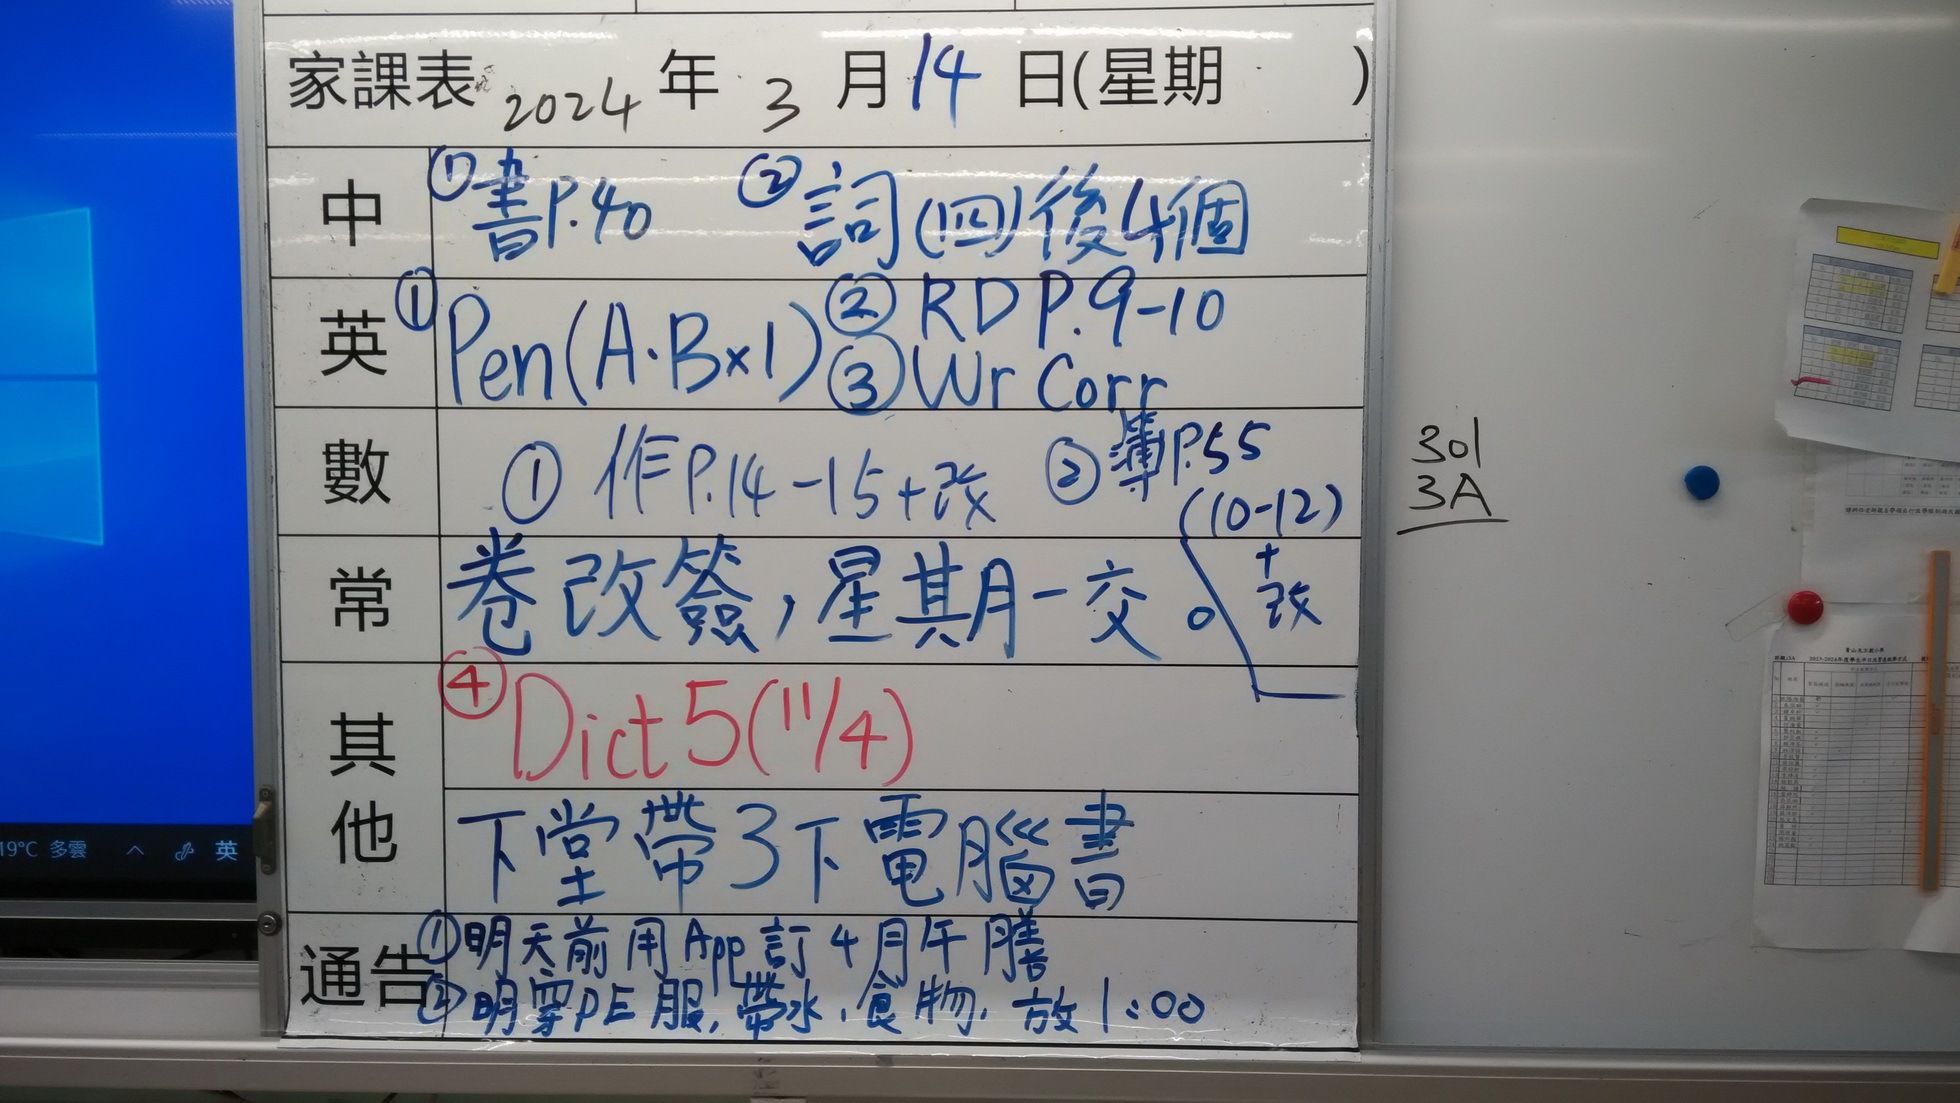 家課表 2024 年 3 月 14 日(星期 )
中 ①書P.40 ②詞(四)後4個
英 ①Pen(A·B×1) ②RD P.9-10
③Wr Corr
數 ①作P.14-15+改 ②簿P.55
(10-12)
+
改
常 卷改簽，星期一交。
其他 ④Dict 5(11/4)
下堂帶3下電腦書
通告 ①明天前用App訂4月午膳
②明穿PE服,帶水,食物,放1:00
301
3A
19°C 多雲 英